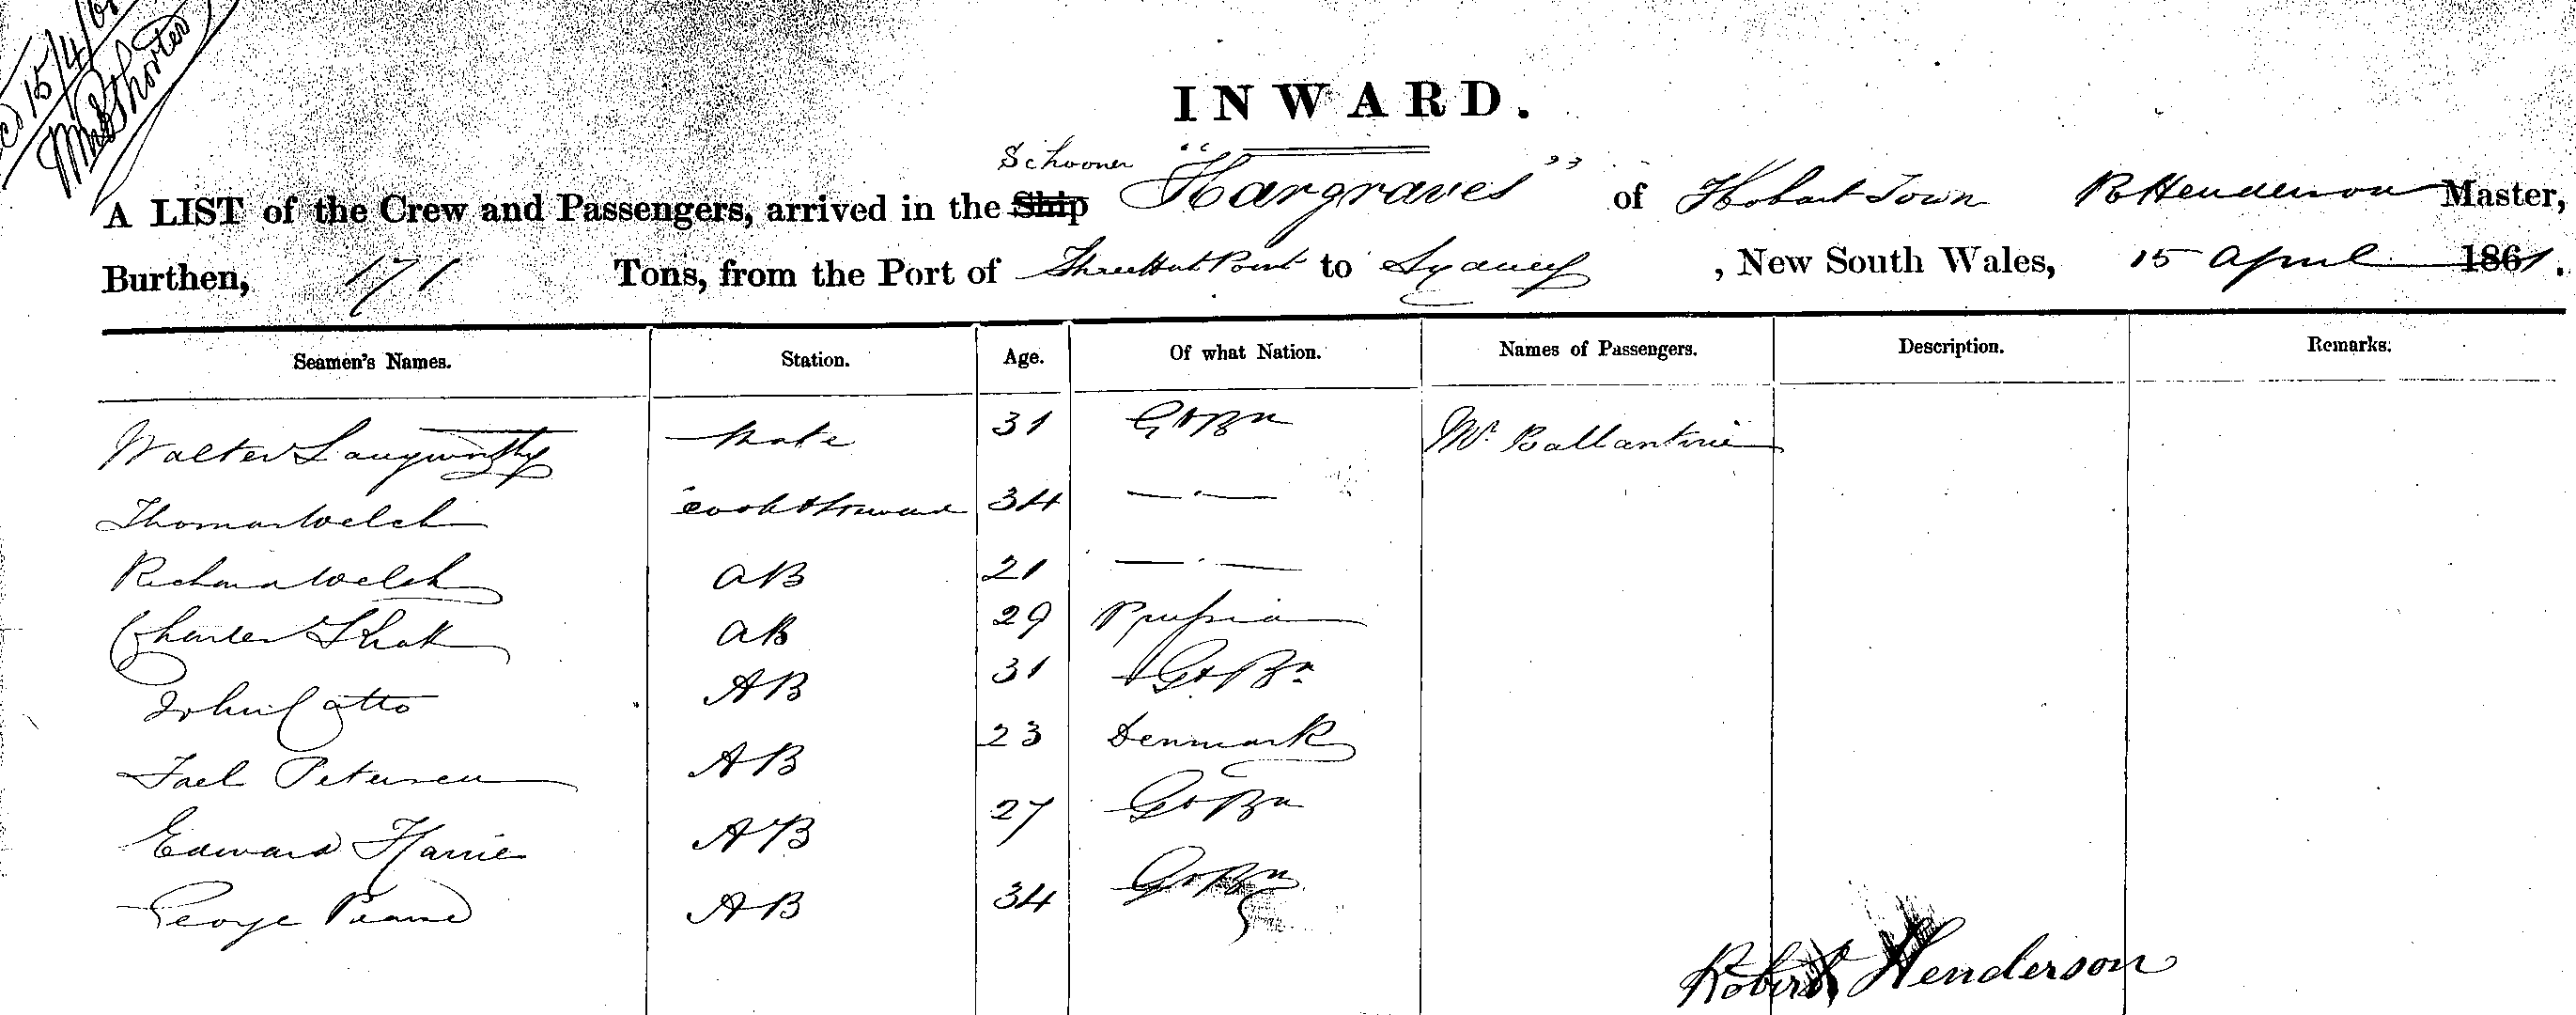 15/4/61
INWARD.
Schooner
A LIST of the Crew and Passengers, arrived in the Ship "Hargraves" of Hobart Town R Henderson Master,
Burthen, 171 Tons, from the Port of Three Hut Point to Sydney, New South Wales, 15 April 1861.
Seamen's Names. Station. Age. Of what Nation. Names of Passengers. Description. Remarks.
Walter Langworthy Mate 31 Gt Bn Mr Ballantine
Thomas Welch Cook & Steward 34 — " —
Richard Welch AB 21 — " —
Charles AB 29 Prussia
John Catto AB 31 Gt Bn
Petersen AB 23 Denmark
Edward Harrie AB 27 Gt Bn
George AB 34 Gt Bn
Robert Henderson